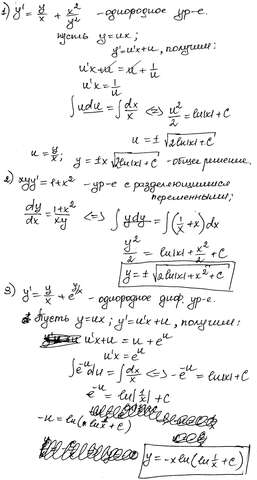 1) y' = y/x + x²/y² - однородное ур-е.
пусть y = ux;
y' = u'x + u, получим:
u'x + u = u + 1/u
u'x = 1/u
∫udu = ∫dx/x <=> u²/2 = ln|x| + C
u = ± √(2ln|x| + C)
u = y/x; y = ±x√(2ln|x| + C) - общее решение.
2) xyy' = 1+x² - ур-е с разделяющимися
переменными;
dy/dx = (1+x²)/xy <=> ∫ydy = ∫(1/x + x)dx
y²/2 = ln|x| + x²/2 + C
y = ± √(2ln|x| + x² + C)
3) y' = y/x + e^(y/x) - однородное диф. ур-е.
Пусть y = ux; y' = u'x + u, получим:
u'x + u = u + e^u
u'x = e^u
∫e^(-u)du = ∫dx/x <=> -e^(-u) = ln|x| + C
e^(-u) = ln|1/x| + C
-u = ln(ln 1/x + C)
y = -x ln(ln 1/x + C)